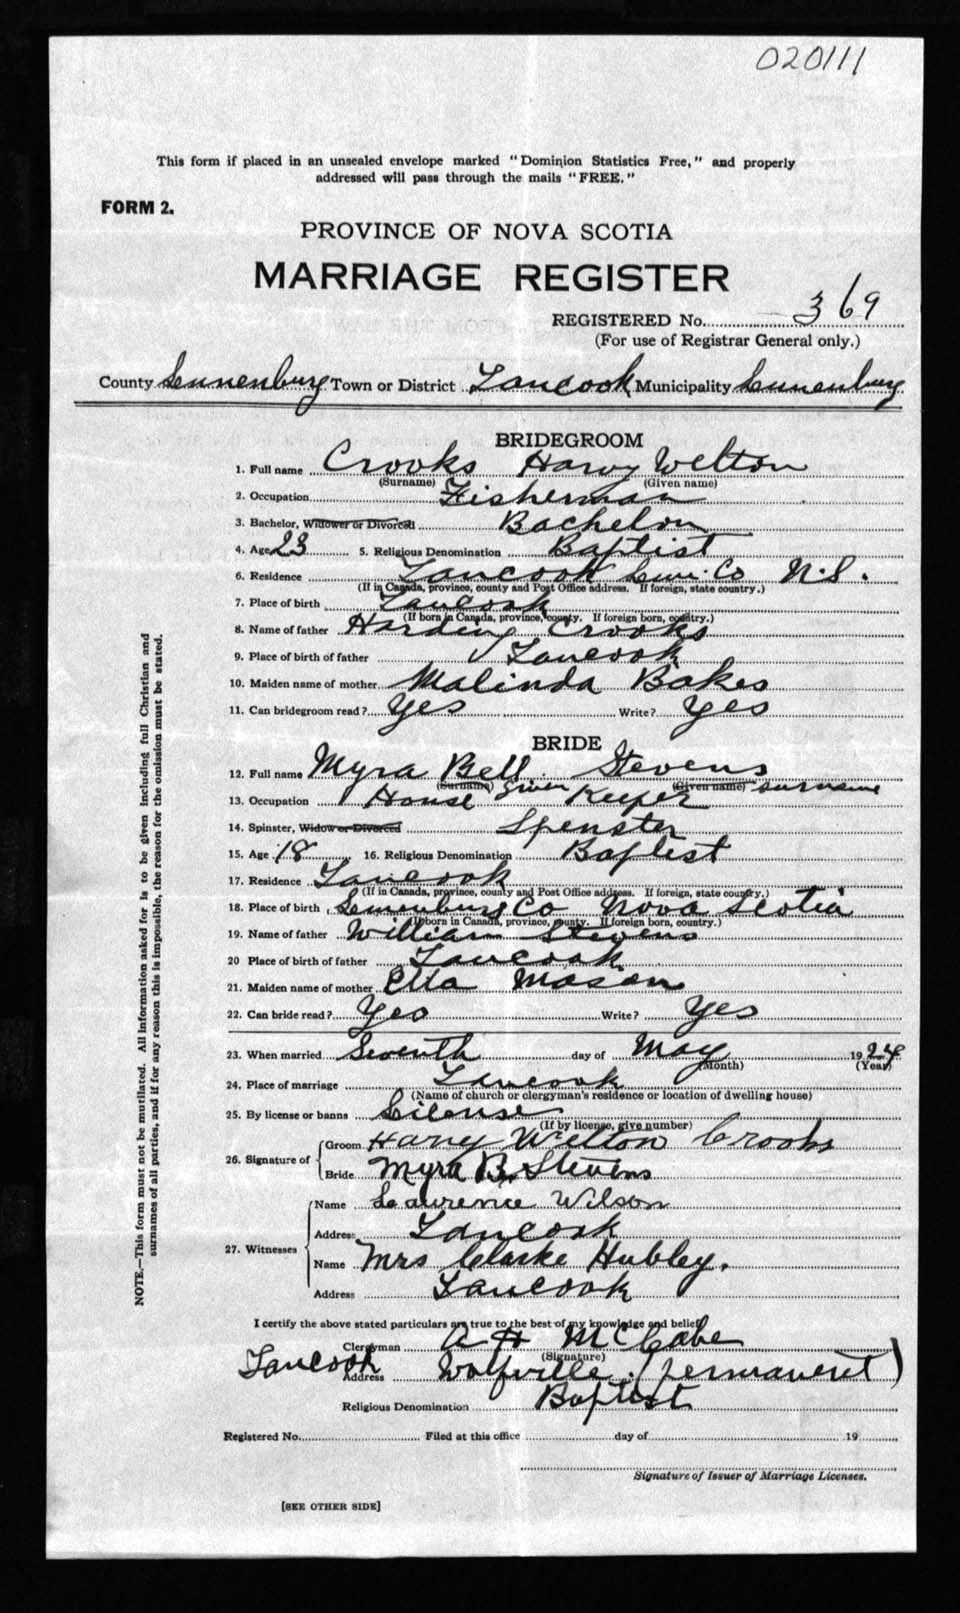 020111
This form if placed in an unsealed envelope marked "Dominion Statistics Free," and properly
addressed will pass through the mails "FREE."
FORM 2.
PROVINCE OF NOVA SCOTIA
MARRIAGE REGISTER
REGISTERED No. 369
(For use of Registrar General only.)
County Lunenburg Town or District Tancook Municipality Lunenburg
BRIDEGROOM
1. Full name Crooks Harvy Welton
(Surname) (Given name)
2. Occupation Fisherman
3. Bachelor, Widower or Divorced Bachelon
4. Age 23 5. Religious Denomination Baptist
6. Residence Tancook Lun. Co N.S.
(If in Canada, province, county and Post Office address. If foreign, state country.)
7. Place of birth Tancook
(If born in Canada, province, county. If foreign born, country.)
8. Name of father Harding Crooks
9. Place of birth of father Tancook
10. Maiden name of mother Malinda Bakes
11. Can bridegroom read? Yes Write? Yes
BRIDE
12. Full name Myra Bell Stevens
(Surname) Given (Given name) surname
13. Occupation House Keeper
14. Spinster, Widow or Divorced Spenster
15. Age 18 16. Religious Denomination Baptist
17. Residence Tancook
(If in Canada, province, county and Post Office address. If foreign, state country.)
18. Place of birth Lunenburg Co Nova Scotia
(If born in Canada, province, county. If foreign born, country.)
19. Name of father William Stevens
20 Place of birth of father Tancook
21. Maiden name of mother Etta Mason
22. Can bride read? Yes Write? Yes
23. When married Seventh day of May 1924
(Month) (Year)
24. Place of marriage Tancook
(Name of church or clergyman's residence or location of dwelling house)
25. By license or banns License
(If by license, give number)
26. Signature of Groom Harvy Welton Crooks
Bride Myra B. Stevens
27. Witnesses Name Laurence Wilson
Address Tancook
Name Mrs Clarke Hubley.
Address Tancook
I certify the above stated particulars are true to the best of my knowledge and belief
Clergyman A H McCabe
(Signature)
Tancook Address Wolfville (permanent)
Religious Denomination Baptist
Registered No. Filed at this office day of 19
Signature of Issuer of Marriage Licenses.
[SEE OTHER SIDE]
NOTE.—This form must not be mutilated. All information asked for is to be given including full Christian and
surnames of all parties, and if for any reason this is impossible, the reason for the omission must be stated.